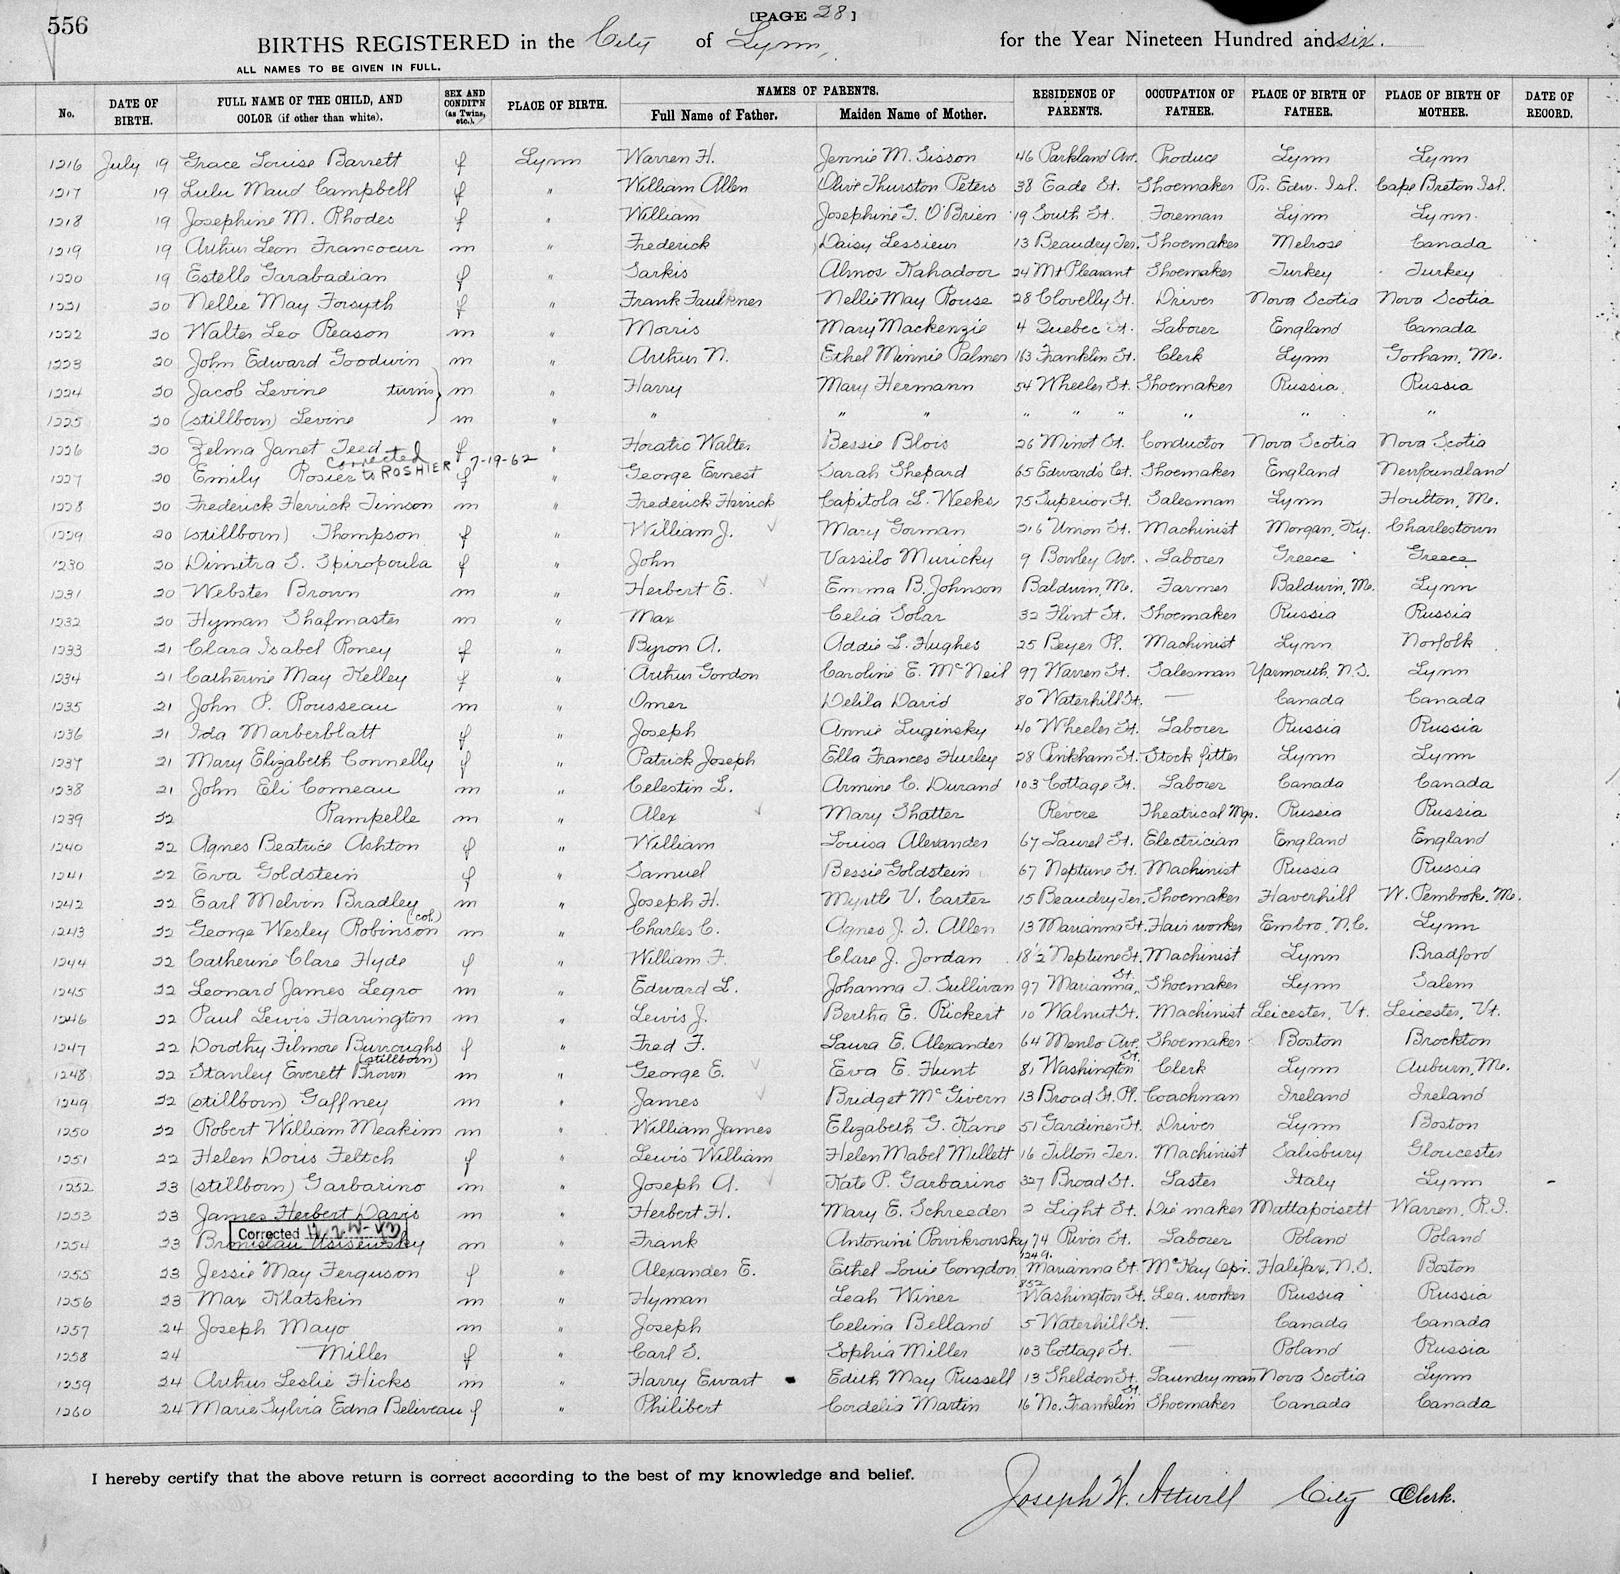 556
[PAGE 28]
BIRTHS REGISTERED in the City of Lynn, for the Year Nineteen Hundred and six.
ALL NAMES TO BE GIVEN IN FULL.
No. DATE OF BIRTH. FULL NAME OF THE CHILD, AND COLOR (if other than white). SEX AND CONDIT'N (as Twins, etc.). PLACE OF BIRTH. NAMES OF PARENTS. Full Name of Father. Maiden Name of Mother. RESIDENCE OF PARENTS. OCCUPATION OF FATHER. PLACE OF BIRTH OF FATHER. PLACE OF BIRTH OF MOTHER. DATE OF RECORD.
1216 July 19 Grace Louise Barrett f Lynn Warren H. Jennie M. Sisson 46 Parkland Ave. Produce Lynn Lynn
1217 19 Lulu Maud Campbell f " William Allen Olive Thurston Peters 38 Eade St. Shoemaker Pr. Edw. Isl. Cape Breton Isl.
1218 19 Josephine M. Rhodes f " William Josephine G. O'Brien 19 South St. Foreman Lynn Lynn.
1219 19 Arthur Leon Francoeur m " Frederick Daisy Lessieur 13 Beaudry Ter. Shoemaker Melrose Canada
1220 19 Estelle Garabadian f " Sarkis Almos Kahadoor 24 Mt Pleasant Shoemaker Turkey Turkey
1221 20 Nellie May Forsyth f " Frank Faulkner Nellie May Rouse 28 Clovelly St. Driver Nova Scotia Nova Scotia
1222 20 Walter Leo Reason m " Morris Mary Mackenzie 4 Quebec St. Laborer England Canada
1223 20 John Edward Goodwin m " Arthur N. Ethel Minnie Palmer 163 Franklin St. Clerk Lynn Gorham, Me.
1224 20 Jacob Levine twins m " Harry Mary Hermann 54 Wheeler St. Shoemaker Russia Russia
1225 20 (stillborn) Levine m " " " " " " " " " "
1226 20 Zelma Janet Teed f " Horatio Walter Bessie Blois 26 Minot St. Conductor Nova Scotia Nova Scotia
corrected to ROSHIER 7-19-62
1227 20 Emily Rosier f " George Ernest Sarah Shepard 65 Edward's Ct. Shoemaker England Newfoundland
1228 20 Frederick Herrick Timson m " Frederick Herrick Capitola L. Weeks 75 Superior St. Salesman Lynn Houlton, Me.
1229 20 (stillborn) Thompson f " William J. Mary Gorman 216 Union St. Machinist Morgan, Ky. Charlestown
1230 20 Dimitra S. Spiropoula f " John Vassilo Muricky 9 Bowley Ave. Laborer Greece Greece
1231 20 Webster Brown m " Herbert E. Emma B. Johnson Baldwin, Me. Farmer Baldwin, Me. Lynn
1232 20 Hyman Shafmaster m " Max Celia Solar 32 Flint St. Shoemaker Russia Russia
1233 21 Clara Isabel Roney f " Byron A. Addie L. Hughes 25 Beyer Pl. Machinist Lynn Norfolk
1234 21 Catherine May Kelley f " Arthur Gordon Caroline E. McNeil 97 Warren St. Salesman Yarmouth, N.S. Lynn
1235 21 John P. Rousseau m " Omer Delila David 80 Waterhill St. — Canada Canada
1236 21 Ida Marberblatt f " Joseph Annie Luginsky 40 Wheeler St. Laborer Russia Russia
1237 21 Mary Elizabeth Connelly f " Patrick Joseph Ella Frances Hurley 28 Pinkham St. Stock fitter Lynn Lynn
1238 21 John Eli Comeau m " Celestin L. Armine C. Durand 103 Cottage St. Laborer Canada Canada
1239 22 Rampelle m " Alex Mary Shatter Revere Theatrical Mgr. Russia Russia
1240 22 Agnes Beatrice Ashton f " William Louisa Alexander 67 Laurel St. Electrician England England
1241 22 Eva Goldstein f " Samuel Bessie Goldstein 67 Neptune St. Machinist Russia Russia
1242 22 Earl Melvin Bradley m " Joseph H. Myrtle V. Carter 15 Beaudry Ter. Shoemaker Haverhill W. Pembroke, Me.
1243 22 George Wesley Robinson (col.) m " Charles C. Agnes J. T. Allen 13 Marianna St. Hair worker Embro, N.C. Lynn
1244 22 Catherine Clare Hyde f " William F. Clare J. Jordan 18½ Neptune St. Machinist Lynn Bradford
1245 22 Leonard James Legro m " Edward L. Johanna T. Sullivan 97 Marianna St. Shoemaker Lynn Salem
1246 22 Paul Lewis Harrington m " Lewis J. Bertha E. Rickert 10 Walnut St. Machinist Leicester, Vt. Leicester, Vt.
1247 22 Dorothy Filmore Burroughs f " Fred F. Laura E. Alexander 64 Menlo Ave. Shoemaker Boston Brockton
1248 22 Stanley Everett Brown (stillborn) m " George E. Eva E. Hunt 81 Washington St. Clerk Lynn Auburn, Me.
1249 22 (stillborn) Gaffney m " James Bridget McGivern 13 Broad St. Pl. Coachman Ireland Ireland
1250 22 Robert William Meakim m " William James Elizabeth G. Kane 51 Gardiner St. Driver Lynn Boston
1251 22 Helen Doris Feltch f " Lewis William Helen Mabel Millett 16 Tilton Ter. Machinist Salisbury Gloucester
1252 23 (stillborn) Garbarino m " Joseph A. Kate P. Garbarino 327 Broad St. Laster Italy Lynn
1253 23 James Herbert Davis m " Herbert H. Mary E. Schreeder 2 Light St. Die maker Mattapoisett Warren, R.I.
Corrected
1254 23 Bronislau Usisewsky m " Frank Antonini Povikrowsky 74 River St. Laborer Poland Poland
1255 23 Jessie May Ferguson f " Alexander E. Ethel Louie Congdon 124 9. Marianna St. McKay Opr. Halifax, N.S. Boston
1256 23 Max Klatskin m " Hyman Leah Winer 852 Washington St. Lea. worker Russia Russia
1257 24 Joseph Mayo m " Joseph Celina Belland 5 Waterhill St. — Canada Canada
1258 24 Miller f " Carl S. Sophia Miller 103 Cottage St. — Poland Russia
1259 24 Arthur Leslie Hicks m " Harry Ewart Edith May Russell 13 Sheldon St. Laundryman Nova Scotia Lynn
1260 24 Marie Sylvia Edna Beliveau f " Philibert Cordelia Martin 16 No. Franklin St. Shoemaker Canada Canada
I hereby certify that the above return is correct according to the best of my knowledge and belief.
Joseph W. Attwill City Clerk.